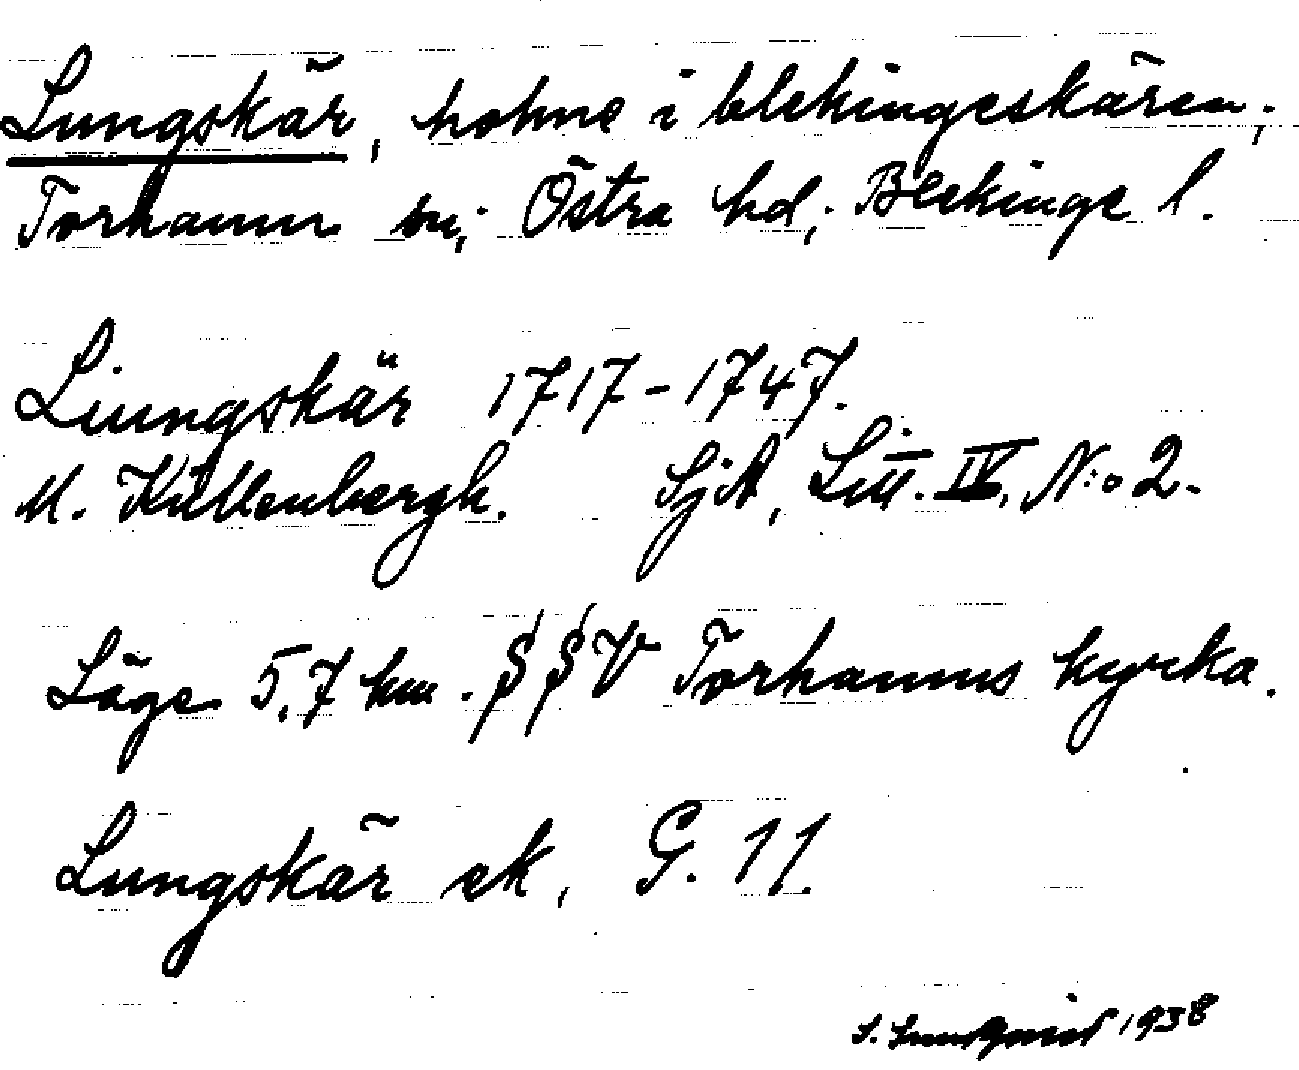 Lungskär, holme i blekingeskären;
Torhamn sn; Östra hd; Blekinge l.
Liungskär 1717-1747.
M. Källenbergh. SjA, Litt. IV, N:o 2.
Läge 5,7 km. § § V Torhamns kyrka.
Lungskär ek, G. 11.
S. Lundqvist 1938